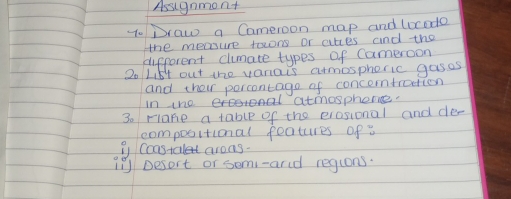 Assignment
1. Draw a Cameroon map and locate
the measure towns or cities and the
different climate types of Cameroon
2. List out the various atmospheric gases
and their parcentage of concerntraction
in the erosional atmospheric.
3. Make a table of the erosional and de-
compositional features of:
i) Coastal areas.
ii) Desert or semi-arid regions.